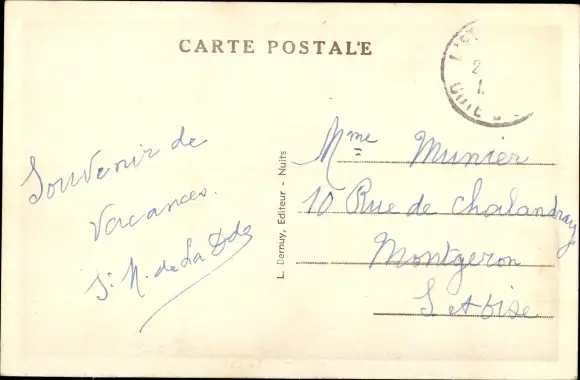 CARTE POSTALE
CÔTE
Souvenir de
Vacances.
L. Bernuy, Editeur - Nuits
Mme Munier
10 Rue de Chalandray
Montgeron
S et Oise